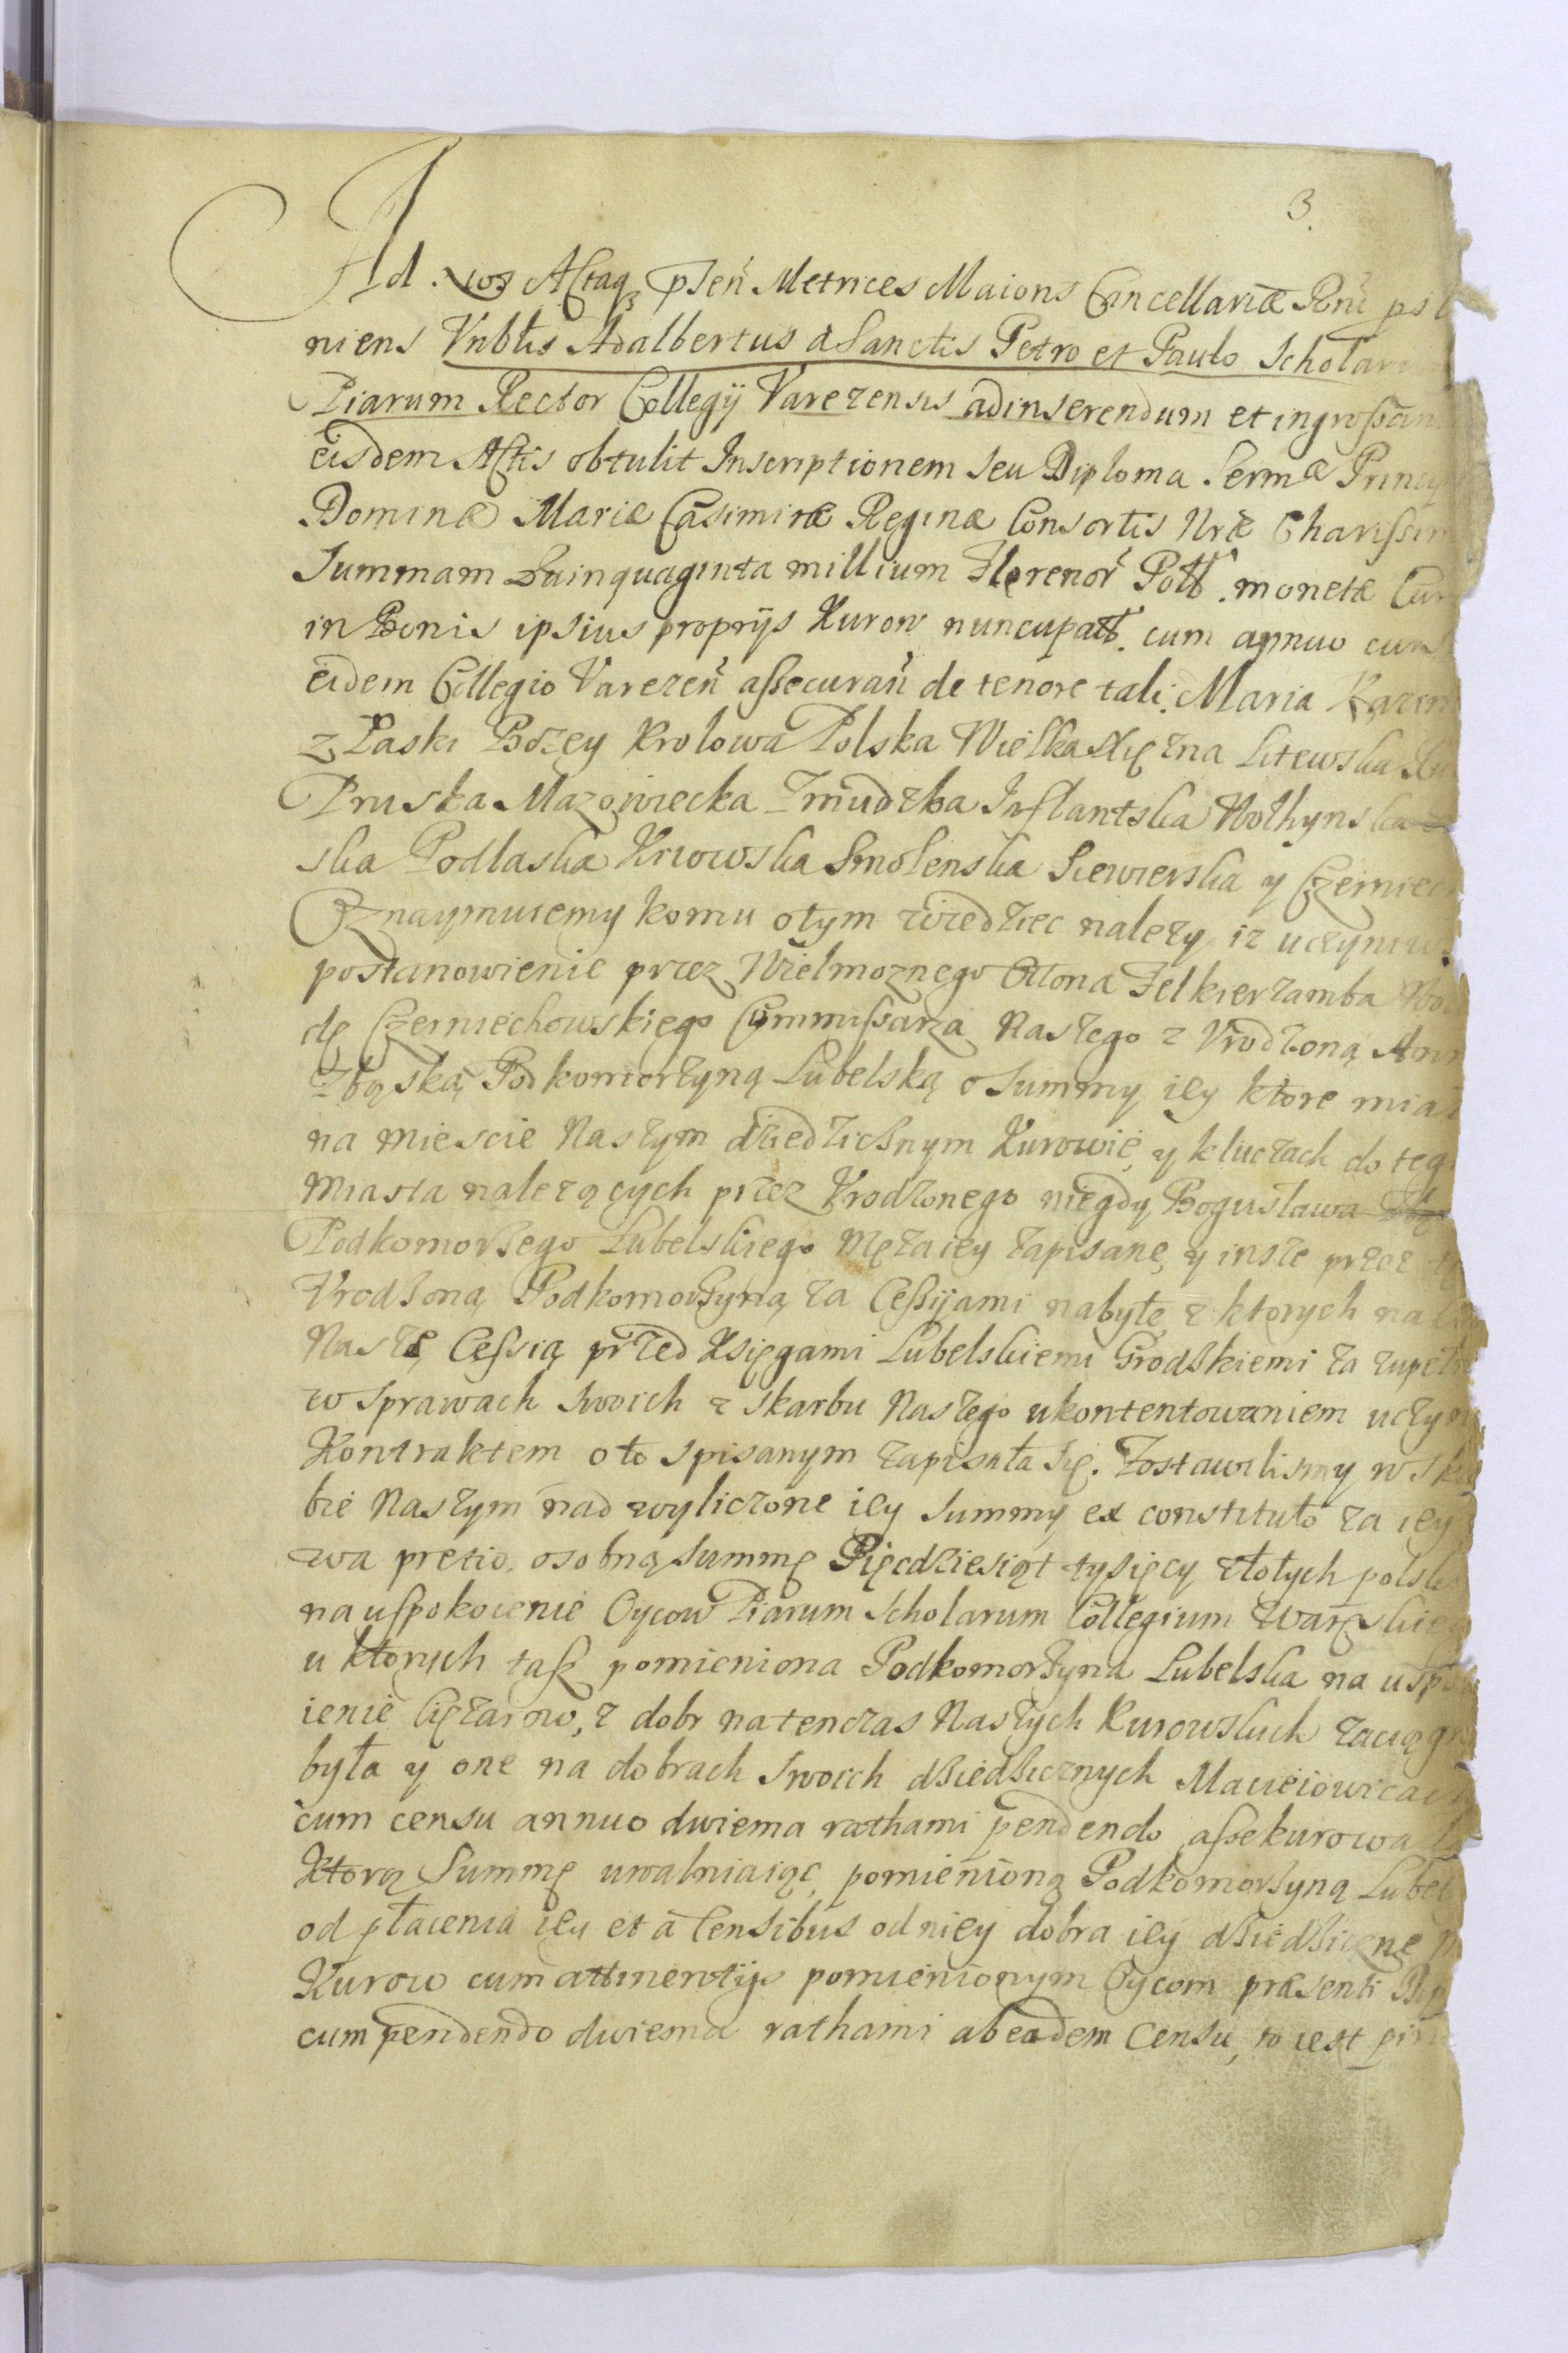 3.
Ad. Nos Actaq3 pſeñ Metrices Maions Cancellariæ Reñi
niens Vnblis Adalbertus a Sanctis Petro et Paulo Scholarum
Piarum Rector Collegÿ Varezensis adinserendum et ingroſsan
eisdem Actis obtulit Inscriptionem seu Diploma Sermæ Princip
Dominæ Mariæ Casimiræ Reginæ Consortis Nræ Chariſsim
Summam Quinquaginta millium Florenor Poll. monetæ Cur
in Bonis ipsius proprÿs Kurow nuncupatt. cum annuo cens
eidem Collegio Varezeñ aſsecurañ de tenore tali. Maria Kazim
z Łaski Bozey Krolowa Polska Wielka Xięzna Litewska Ru
Pruska Mazowiecka Zmudzka Inflantska Wolhynska
ska Podlaska Kiiowska Smolenska Siewierska y Czerniec
Oznaymuiemy komu otym wiedziec nalezy, iz uczyniw
postanowienie przez Wielmoznego Ottona Felkierzamba Wo
dę Czerniechowskiego Commiſsarza Naszego z Vrodzoną Ann
Zbąską Podkomorzyną Lubelską o Summy iey ktore mia
na miescie Naszym dziedzicznym Kurowie, y kluczach do teg
miasta nalezących przez Vrodzonego niegdy Bogusława
Podkomorzego Lubelskiego Męza iey zapisane, y insze przez
Vrodzoną Podkomorzyną za Ceſsÿami nabyte z ktorych na
Naszę Ceſsią przed Xięgami Lubelskiemi Grodzkiemi za zupeł
w sprawach swoich z skarbu Naszego ukontentowaniem uczyn
Kontraktem oto spisanym zapisała się. Zostawilismy w ska
bie Naszym nad wyliczone iey Summy ex constituto za iey
wa pretio. osobną Summę Pięcdziesiąt tysięcy złotych polsk
na uſpokoienie Oycow Piarum Scholarum Collegium Waręskieg
u ktorych taż pomieniona Podkomorzyna Lubelska na uspo
ienie ciężarow, z dobr natenczas Naszych Kurowskich zaciągn
była y one na dobrach swoich dziedzicznych Macieiowica
cum censu annuo dwiema rathami pendendo aſsekurowa
Ktorą Summę uwalniaiąc, pomienioną Podkomorzyną Lubel
od płacenia iey et a Censibus od niey dobra iey dziedziczne
Kurow cum attinentÿs pomienionym Oycom præsenti
cum pendendo dwiema rathami ab eadem Censu, to iest